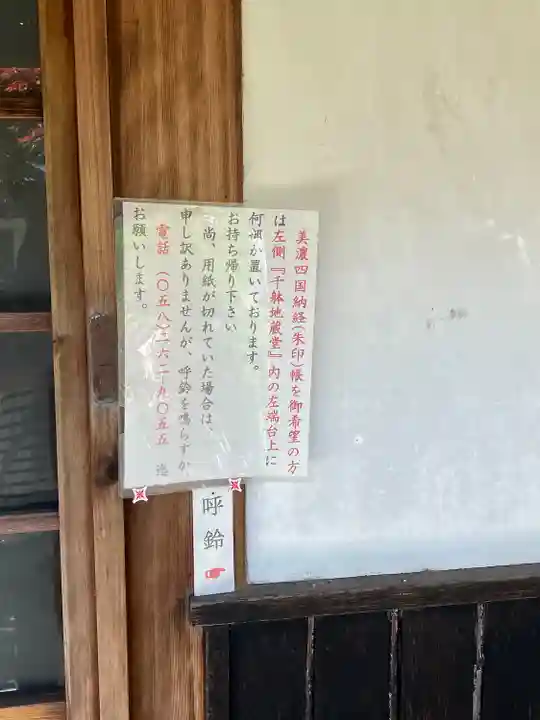 美濃四国納経(朱印)帳を御希望の方
は左側『千躰地蔵堂』内の左端台上に
何冊か置いております。
お持ち帰り下さい
尚、用紙が切れていた場合は、
申し訳ありませんが、呼鈴を鳴らすか、
電話 (〇五八)二六二-九〇五五 迄
お願いします。
呼鈴